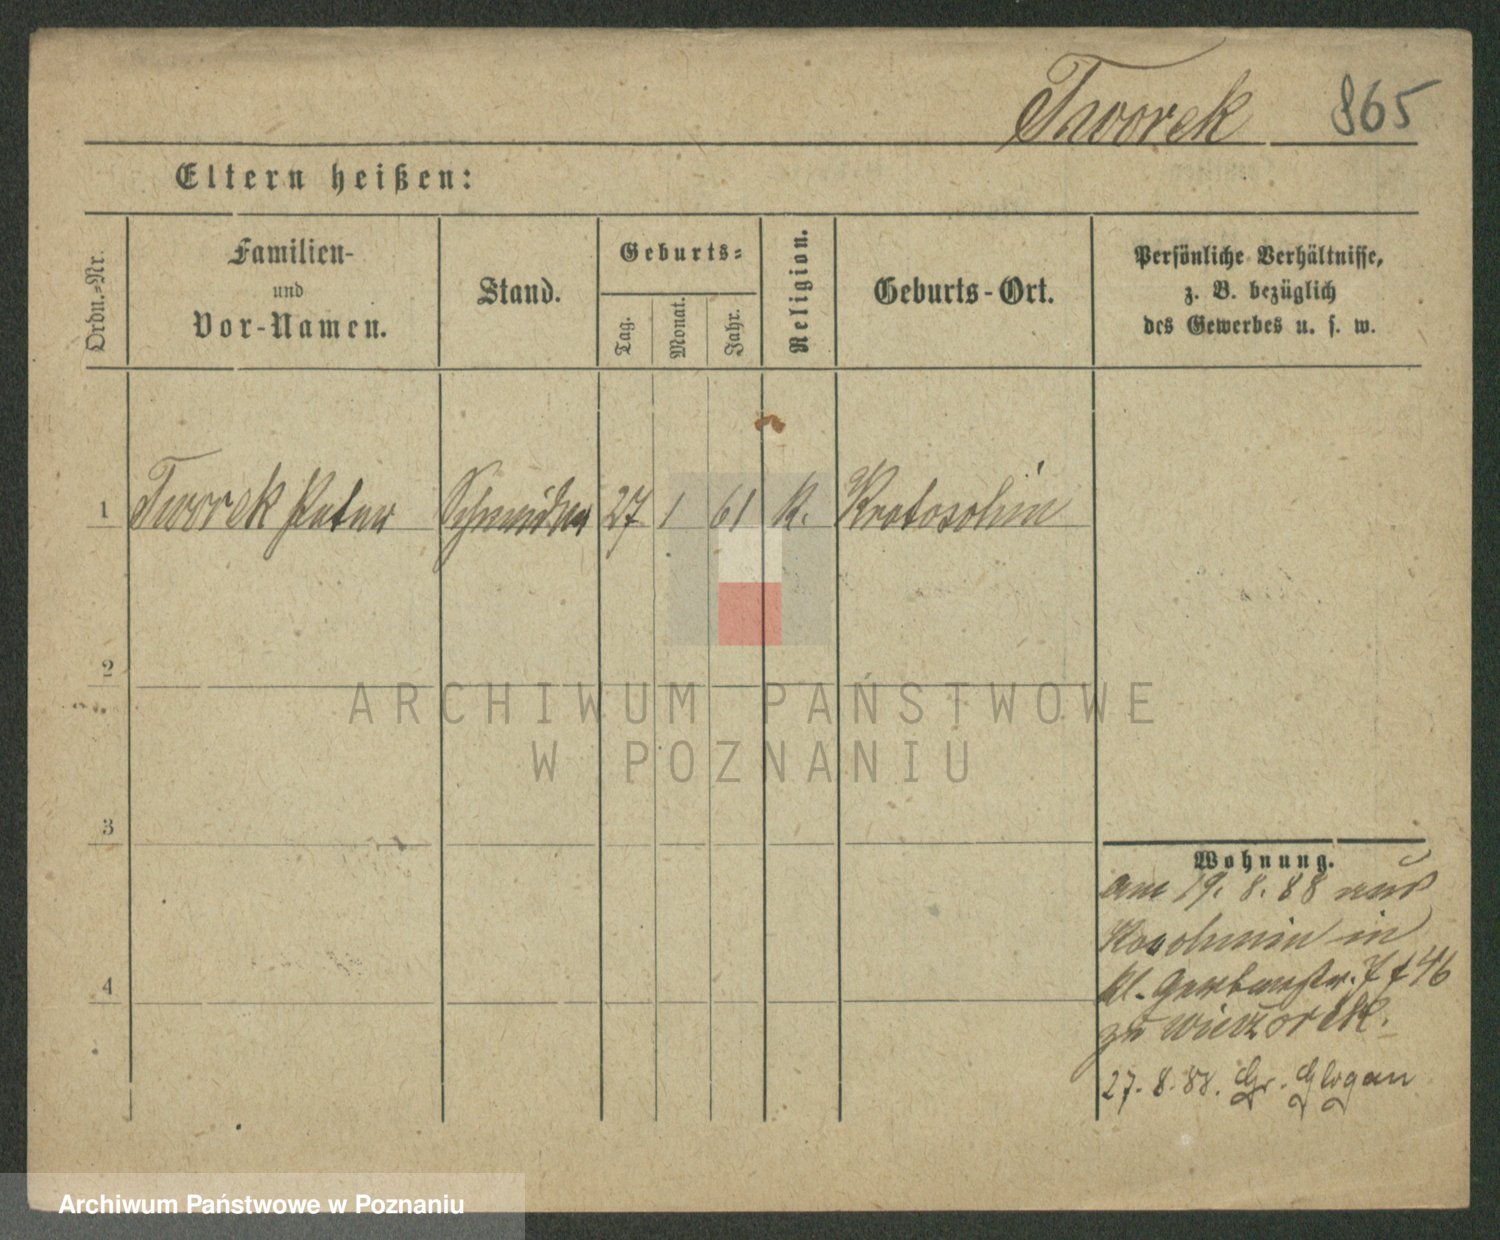 Tworek 865
Eltern heißen:
Ordn.-Nr.
Familien-
und
Vor-Namen.
Stand.
Geburts-
Tag.
Monat.
Jahr.
Religion.
Geburts-Ort.
Persönliche Verhältnisse,
z. B. bezüglich
des Gewerbes u. s. w.
1 Tworek Peter Schneider 27 1 61 k. Krotoschin
2
ARCHIWUM PAŃSTWOWE
W POZNANIU
3
Wohnung.
am 19. 8. 88 aus
in
4
kl. Gerberstr. 7 f 46
zu Wieczorek.
27. 8. 88. Gr. Glogau
Archiwum Państwowe w Poznaniu